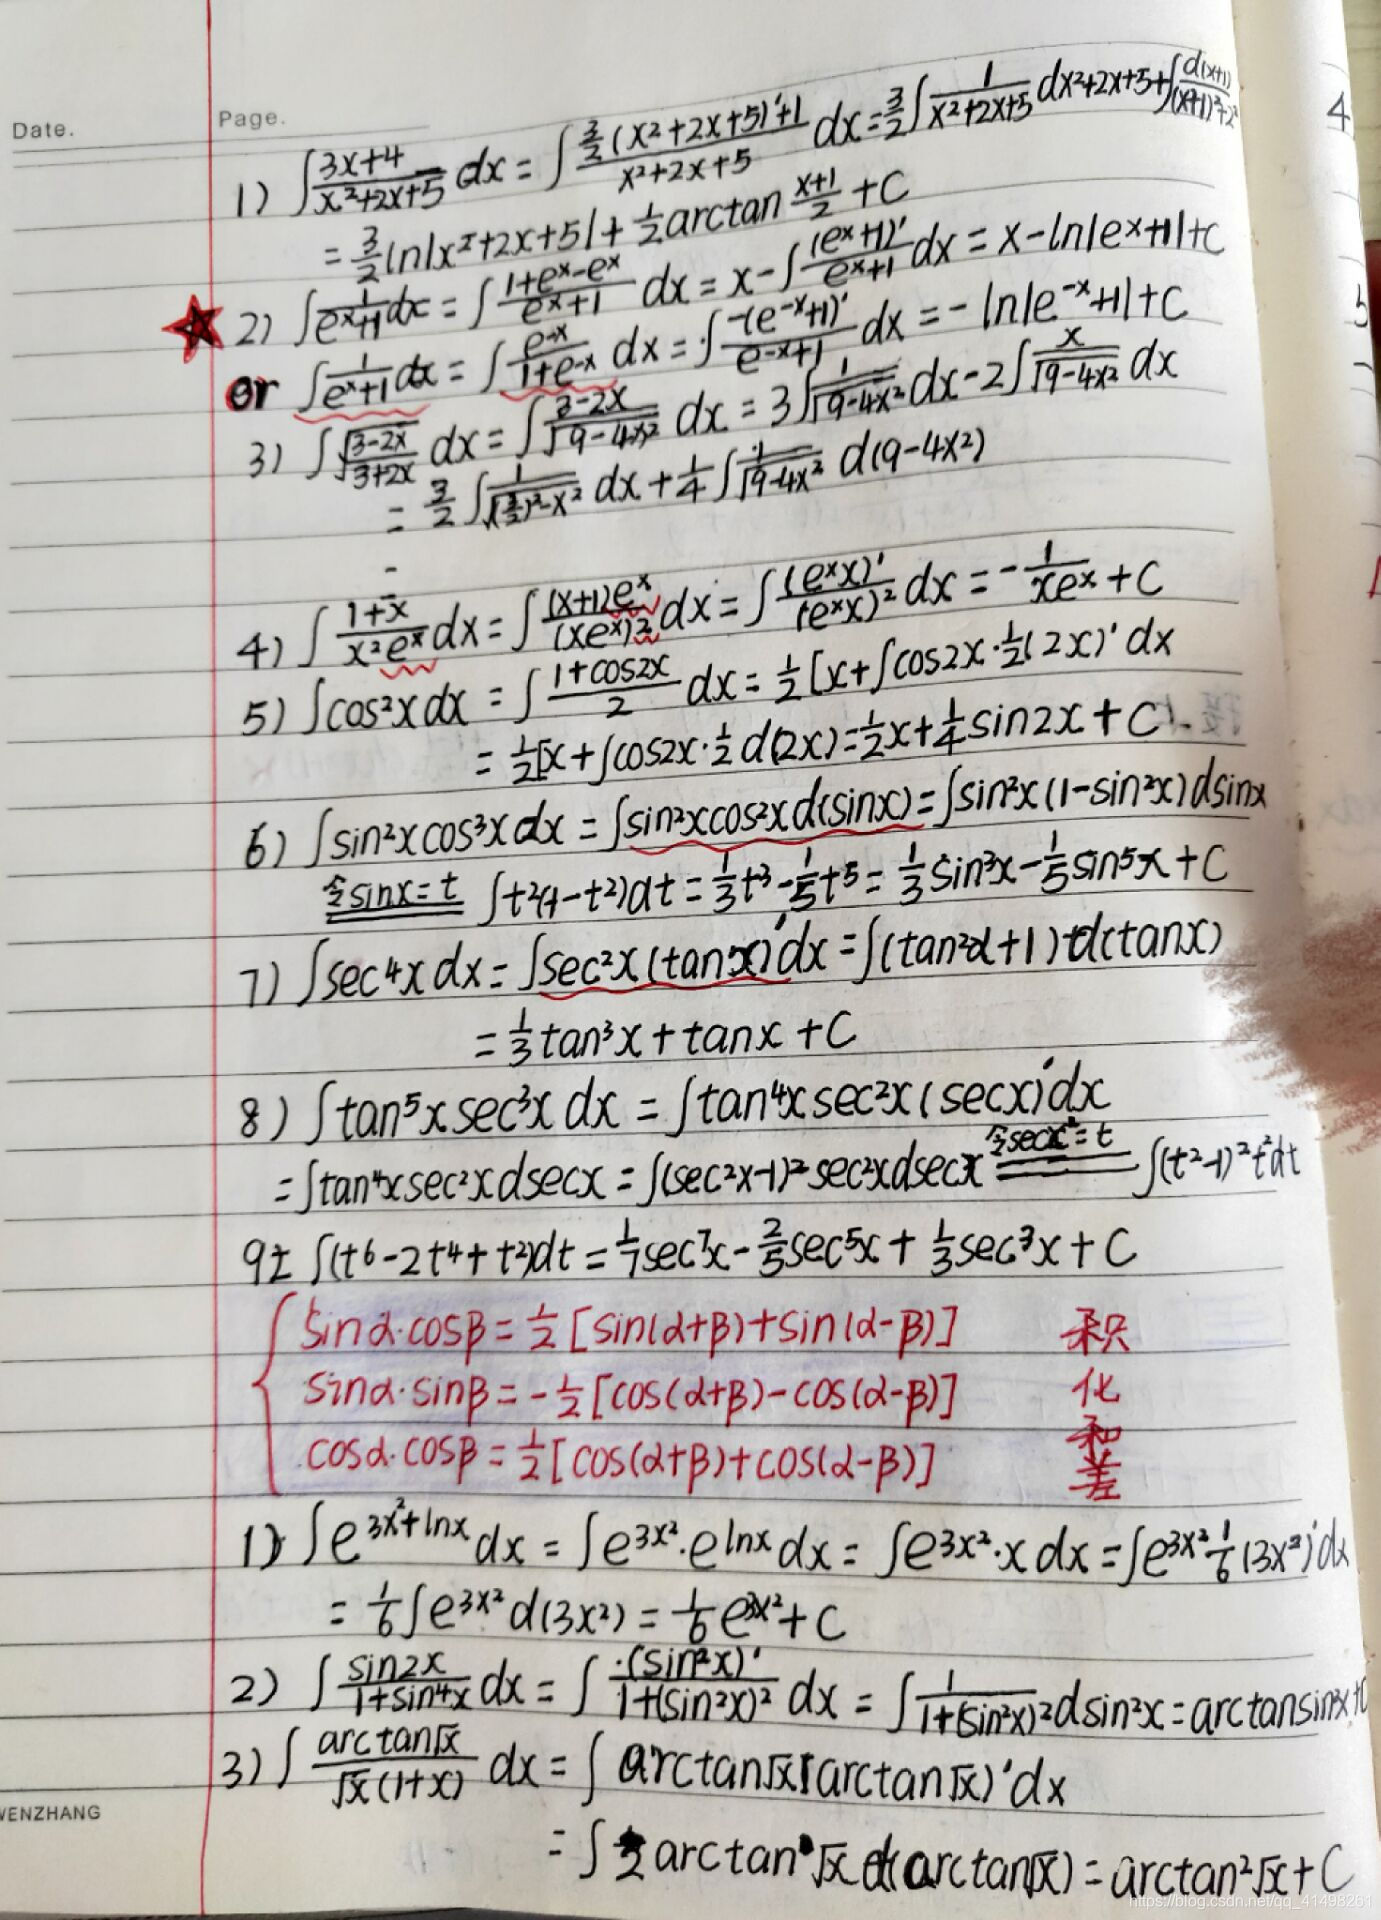 Date.
Page.
4
1) ∫ (3x+4)/(x²+2x+5) dx = ∫ (3/2 (x²+2x+5)'+1)/(x²+2x+5) dx = 3/2 ∫ 1/(x²+2x+5) dx²+2x+5 + ∫ d(x+1)/((x+1)²+2²)
= 3/2 ln|x²+2x+5| + 1/2 arctan (x+1)/2 + C
2) ∫ 1/(eˣ+1) dx = ∫ (1+eˣ-eˣ)/(eˣ+1) dx = x - ∫ (eˣ+1)'/(eˣ+1) dx = x - ln|eˣ+1| + C
5
or ∫ 1/(eˣ+1) dx = ∫ e⁻ˣ/(1+e⁻ˣ) dx = ∫ -(e⁻ˣ+1)'/(e⁻ˣ+1) dx = - ln|e⁻ˣ+1| + C
3) ∫ √((3-2x)/(3+2x)) dx = ∫ (3-2x)/√(9-4x²) dx = 3∫ 1/√(9-4x²) dx - 2∫ x/√(9-4x²) dx
= 3/2 ∫ 1/√((3/2)²-x²) dx + 1/4 ∫ 1/√(9-4x²) d(9-4x²)
4) ∫ (1+x)/(x²eˣ) dx = ∫ (x+1)eˣ/(xeˣ)² dx = ∫ (eˣx)'/(eˣx)² dx = - 1/(xeˣ) + C
5) ∫cos²x dx = ∫ (1+cos2x)/2 dx = 1/2 [x + ∫cos2x · 1/2 (2x)' dx
= 1/2[x + ∫cos2x · 1/2 d(2x) = 1/2 x + 1/4 sin2x + C
6) ∫sin²xcos³x dx = ∫sin²xcos²x d(sinx) = ∫sin²x(1-sin²x) dsinx
令sinx=t ∫t²(1-t²)dt = 1/3 t³ - 1/5 t⁵ = 1/3 sin³x - 1/5 sin⁵x + C
7) ∫sec⁴x dx = ∫sec²x(tanx)'dx = ∫(tan²α+1) d(tanx)
= 1/3 tan³x + tanx + C
8) ∫tan⁵x sec³x dx = ∫tan⁴x sec²x (secx)'dx
= ∫tan⁴x sec²x dsecx = ∫(sec²x-1)² sec²x dsecx 令secx=t ∫(t²-1)²t²dt
9± ∫(t⁶-2t⁴+t²)dt = 1/7 sec⁷x - 2/5 sec⁵x + 1/3 sec³x + C
sinα·cosβ = 1/2 [sin(α+β)+sin(α-β)] 积
sinα·sinβ = -1/2 [cos(α+β)-cos(α-β)] 化
和
cosα·cosβ = 1/2 [cos(α+β)+cos(α-β)] 差
1) ∫e^(3x²+lnx) dx = ∫e^(3x²)·e^(lnx) dx = ∫e^(3x²)·x dx = ∫e^(3x²) 1/6 (3x²)'dx
= 1/6 ∫e^(3x²) d(3x²) = 1/6 e^(3x²) + C
2) ∫ sin2x/(1+sin⁴x) dx = ∫ (sin²x)'/(1+(sin²x)²) dx = ∫ 1/(1+(sin²x)²) dsin²x = arctansin²x+C
3) ∫ arctan√x/(√x(1+x)) dx = ∫ arctan√x(arctan√x)'dx
WENZHANG
= ∫ 2 arctan√x d(arctan√x) = arctan²√x + C
https://blog.csdn.net/qq_41498261